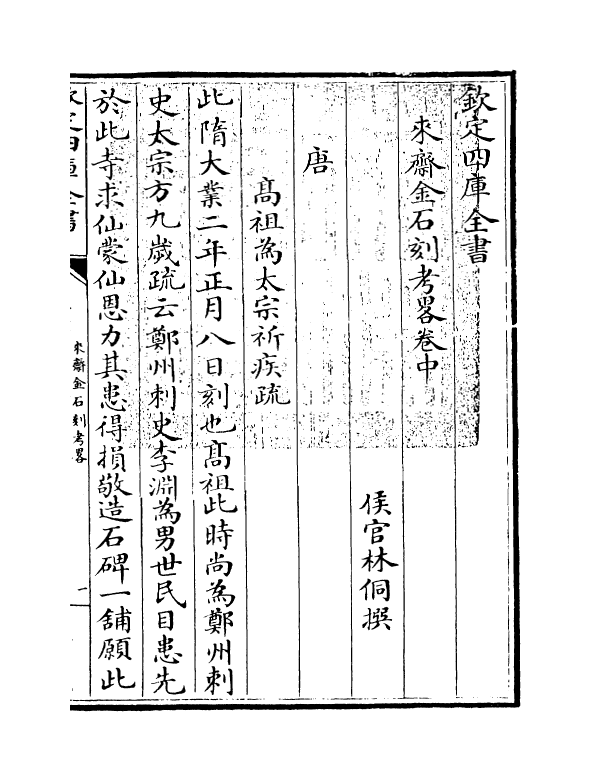 欽定四庫全書
來齋金石刻考畧卷中
侯官林侗撰
唐
髙祖為太宗祈疾疏
此隋大業二年正月八日刻也髙祖此時尚為鄭州刺
史太宗方九歲疏云鄭州刺史李淵為男世民目患先
於此寺求仙蒙仙恩力其患得損敬造石碑一舖願此
欽定四庫全書
來齋金石刻考畧
一